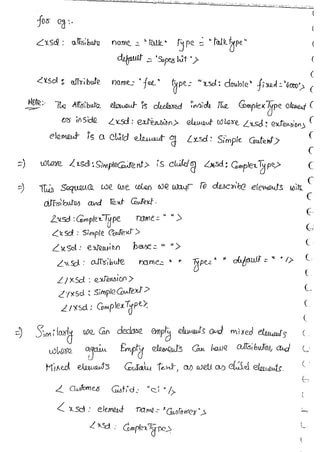 for eg:-
<xsd: attribute name = "Talk" Type = "Talk type"
default = 'Super hit'>
<xsd: attribute name = "fee" type = "xsd: double" fixed = '6000'>
Note:- The Attribute element is declared inside the Complex Type element
or inside <xsd: extension> element where <xsd: extension>
element is a child element of <xsd: Simple Content>
=) where <xsd: SimpleContent> is child of <xsd: Complex Type>
=) This Sequence we use when we want to describe elements with
attributes and Text Content.
<xsd: ComplexType name = " ">
<xsd: Simple Content>
<xsd: extension base = " ">
<xsd: attribute name = " " Type = " " default = " "/>
</xsd: extension>
</xsd: Simple Content>
</xsd: ComplexType>
=) Similarly we can declare empty elements and mixed elements
where again Empty elements can have attributes, and
Mixed elements Contain text, as well as child elements.
< Customer Custid: "c1"/>
< xsd: element name = "Customer">
<xsd: ComplexType>